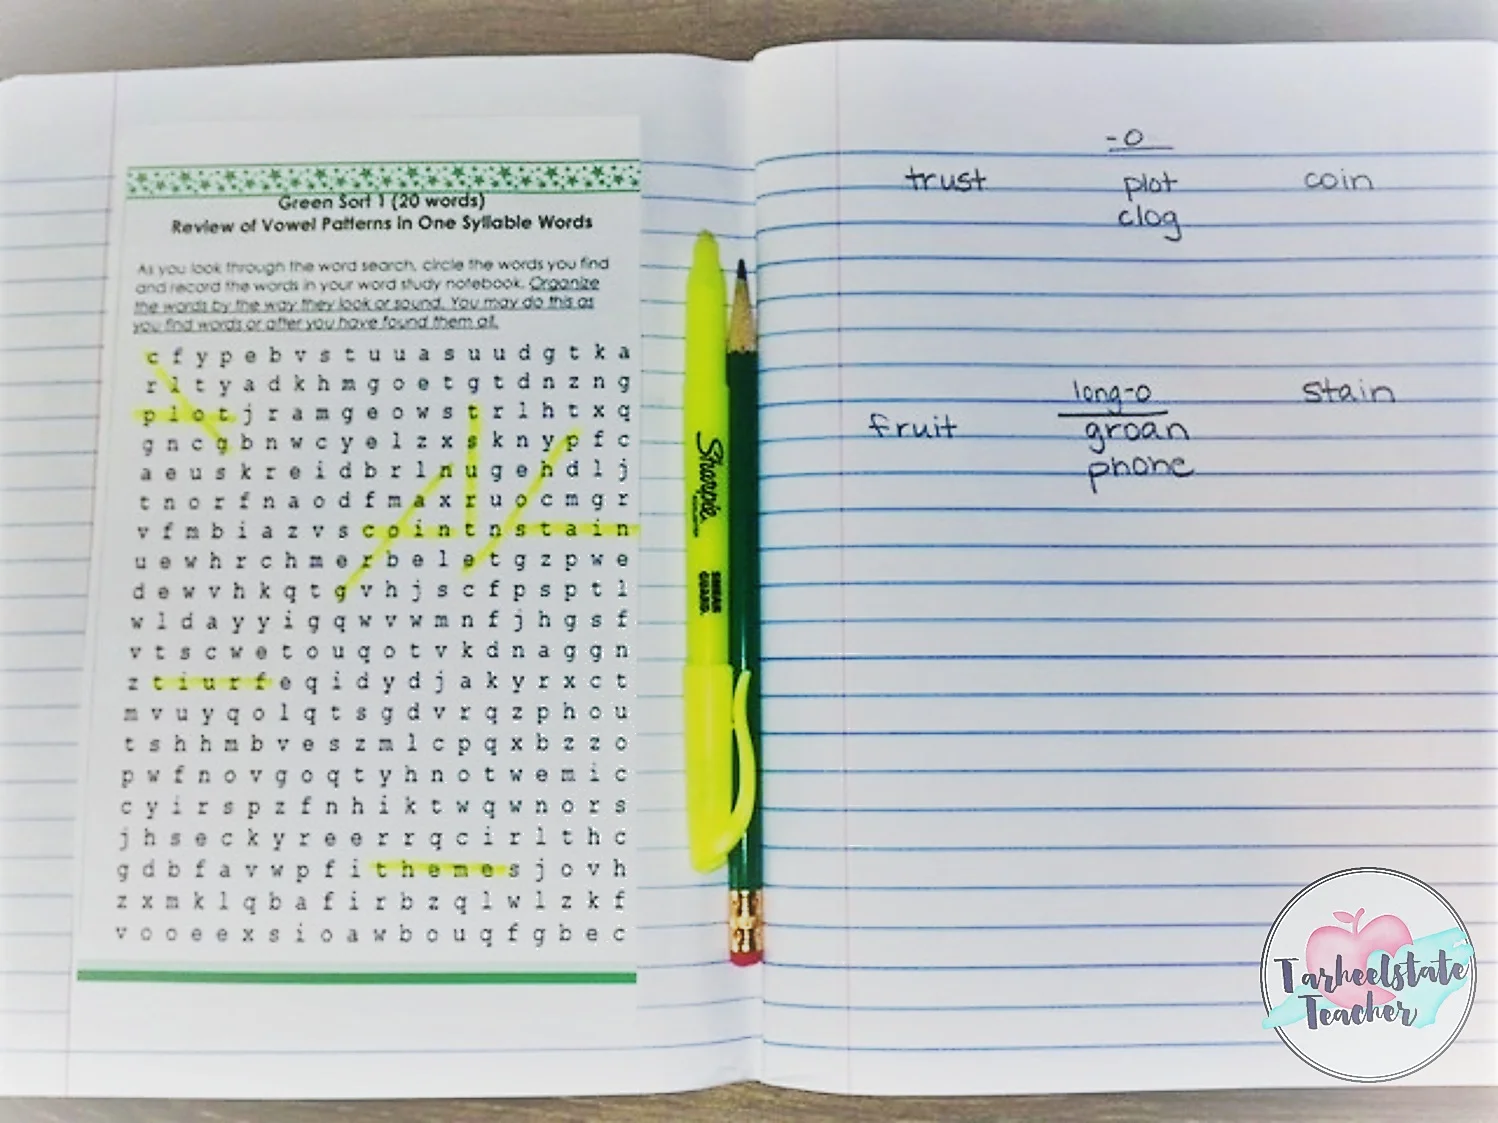 Green Sort 1 (20 words)
Review of Vowel Patterns in One Syllable Words
As you look through the word search, circle the words you find
and record the words in your word study notebook. Organize
the words by the way they look or sound. You may do this as
you find words or after you have found them all.
c f y p e b v s t u u a s u u d g t k a
r l t y a d k h m g o e t g t d n z n g
p l o t j r a m g e o w s t r l h t x q
g n c g b n w c y e l z x s k n y p f c
a e u s k r e i d b r l n u g e h d l j
t n o r f n a o d f m a x r u o c m g r
v f m b i a z v s c o i n t n s t a i n
u e w h r c h m e r b e l e t g z p w e
d e w v h k q t g v h j s c f p s p t l
w l d a y y i g q w v w m n f j h g s f
v t s c w e t o u q o t v k d n a g g n
z t i u r f e q i d y d j a k y r x c t
m v u y q o l q t s g d v r q z p h o u
t s h h m b v e s z m l c p q x b z z o
p w f n o v g o q t y h n o t w e m i c
c y i r s p z f n h i k t w q w n o r s
j h s e c k y r e e r r q c i r l t h c
g d b f a v w p f i t h e m e s j o v h
z x m k l q b a f i r b z q l w l z k f
v o o e e x s i o a w b o u q f g b e c
Sharpie
SMEAR
GUARD.
-o
trust plot coin
clog
long-o stain
fruit groan
phone
Tarheelstate
Teacher